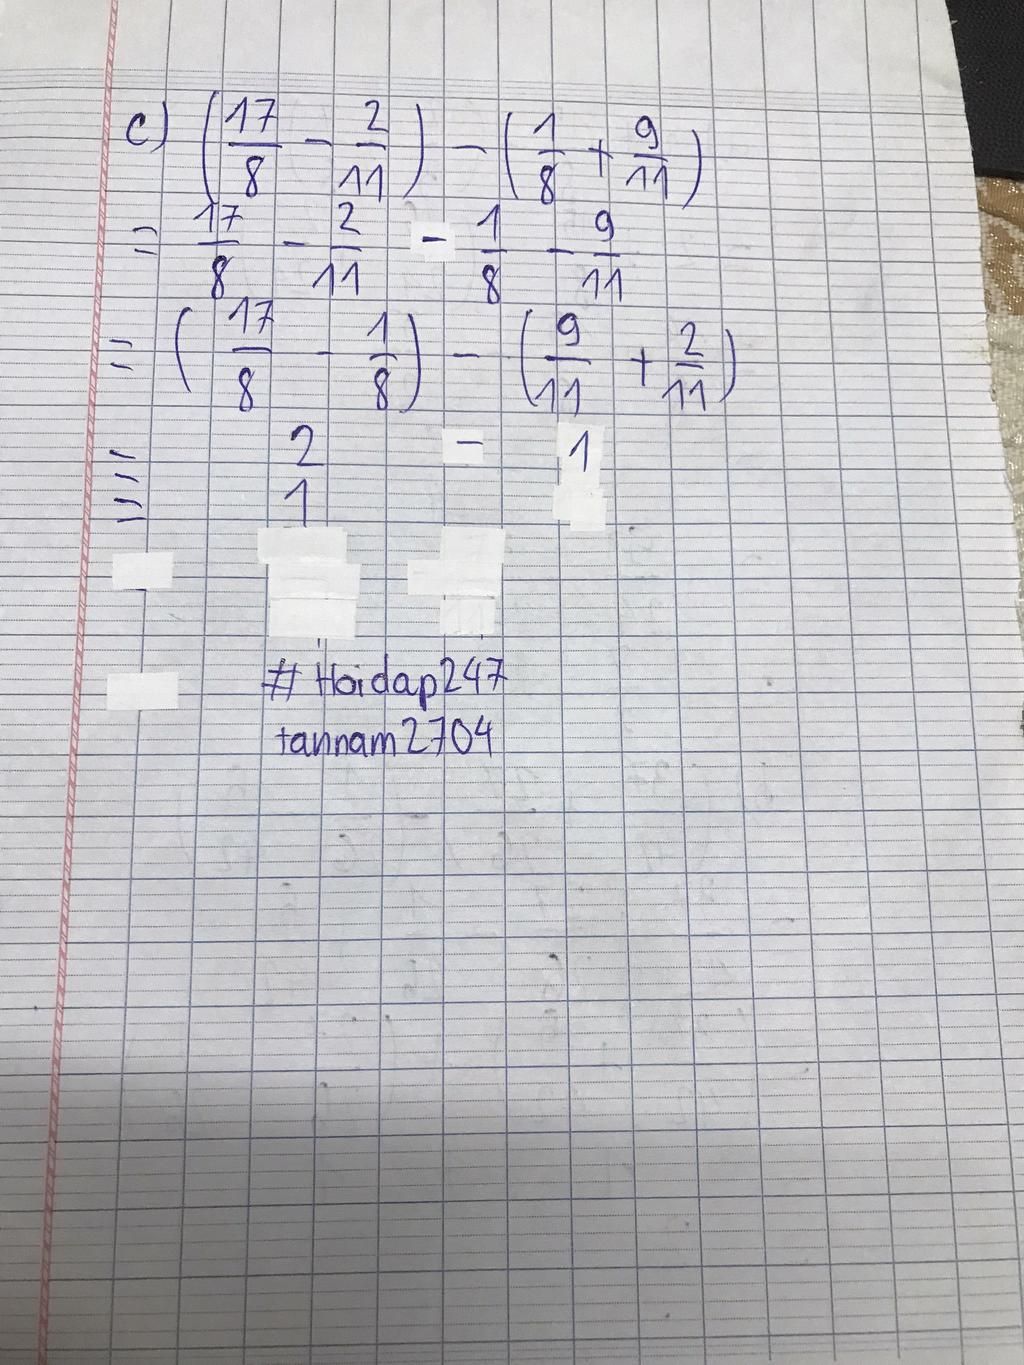 c) (17/8 - 2/11) - (1/8 + 9/11)
= 17/8 - 2/11 - 1/8 - 9/11
= (17/8 - 1/8) - (9/11 + 2/11)
= 2 - 1
= 1
# Hoidap247
tannam2704